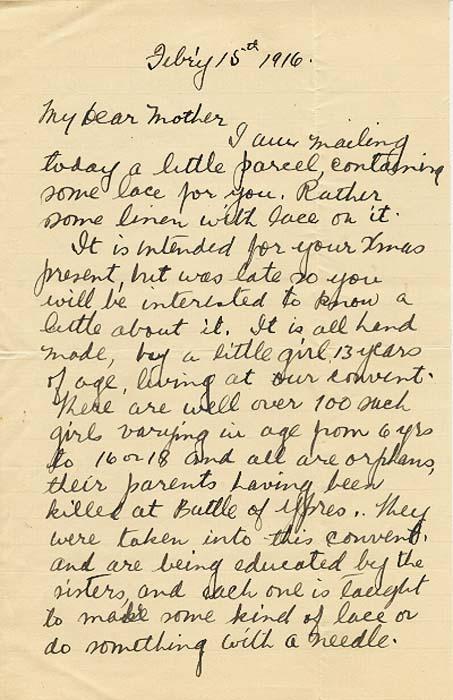 Feb'y 15th 1916.
My Dear Mother
I am mailing
today a little parcel, containing
some lace for you. Rather
some linen with lace on it.
It is intended for your Xmas
present, but was late so you
will be interested to know a
little about it. It is all hand
made, by a little girl, 13 years
of age, living at our convent.
There are well over 100 such
girls varying in age from 6 yrs
to 16 or 18 and all are orphans,
their parents having been
killed at Battle of Ypres.. They
were taken into this convent.
and are being educated by the
sisters, and each one is taught
to make some kind of lace or
do something with a needle.